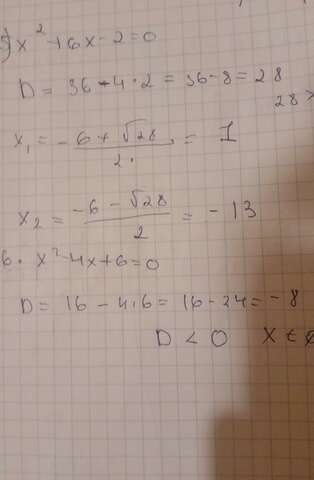 5) x² + 6x - 2 = 0
D = 36 - 4 · 2 = 36 - 8 = 28
28 >
x₁ = - 6 + √28 / 2 · = 1
x₂ = -6 - √28 / 2 = - 13
6. x² - 4x + 6 = 0
D = 16 - 4 · 6 = 16 - 24 = - 8
D < 0 x ∈ ∅